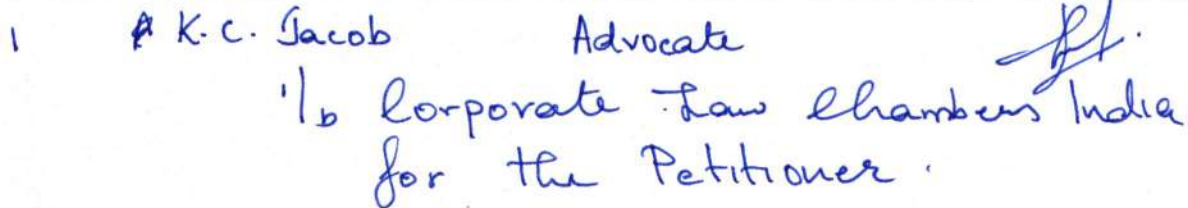 1 K. C. Jacob Advocate
i/b Corporate Law Chambers India
for the Petitioner.